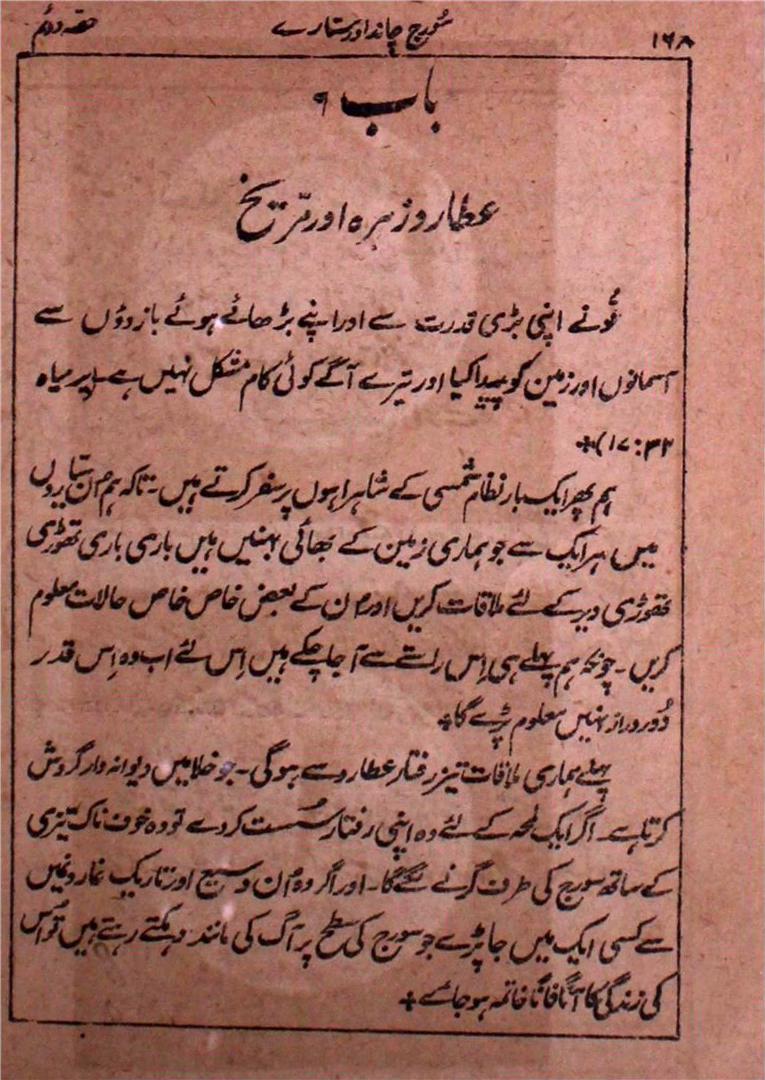 ۱۶۸ سورج چاند اور ستارے حصہ دوئم
باب ۹
عطارد زہرہ اور مریخ
تُونے اپنی بڑی قدرت سے اور اپنے بڑھائے ہوئے بازوؤں سے
آسمانوں اور زمین کو پیدا کیا اور تیرے آگے کوئی کام مشکل نہیں ہے۔ (یرمیاہ
۳۲ : ۱۷)+
ہم پھر ایک بار نظام شمسی کے شاہراہوں پر سفر کرتے ہیں۔ تاکہ ہم اُن سیّاروں
میں ہر ایک سے جو ہماری زمین کے بھائی بہنیں ہیں باری باری تھوڑی
تھوڑی دیر کے لئے ملاقات کریں اور اُن کے بعض خاص خاص حالات معلوم
کریں۔ چونکہ ہم پہلے ہی اِس راستے سے آ جا چکے ہیں اِس لئے اب وہ اِس قدر
دُور دراز نہیں معلوم پڑے گا+
پہلے ہماری ملاقات تیز رفتار عطارد سے ہوگی۔ جو خلا میں دیوانہ وار گردش
کرتا ہے۔ اگر ایک لمحہ کے لئے وہ اپنی رفتار سُست کر دے تو وہ خوف ناک تیزی
کے ساتھ سورج کی طرف گرنے لگے گا۔ اور اگر وہ اُن وسیع اور تاریک غاروں میں
سے کسی ایک میں جا پڑے جو سورج کی سطح پر آگ کی مانند دہکتے رہتے ہیں تو اُس
کی زندگی کا آناً فاناً خاتمہ ہو جائے+